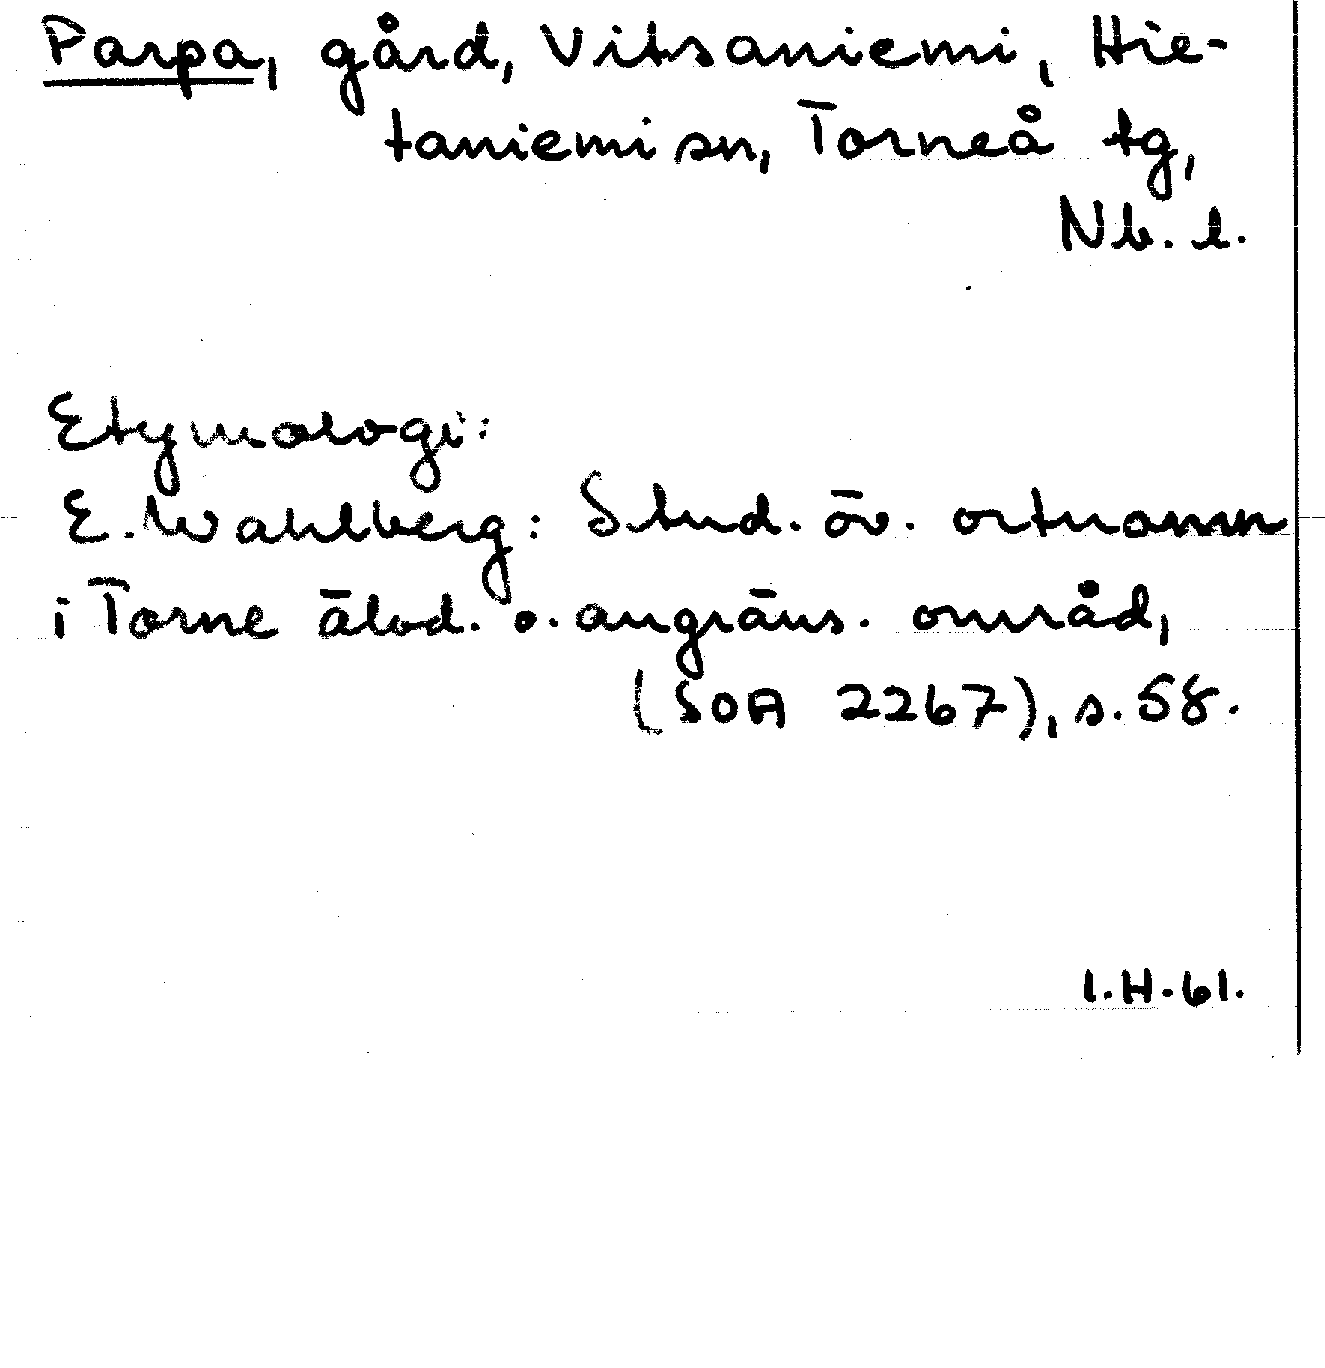 Parpa, gård, Vitsaniemi, Hie-
taniemi sn, Torneå tg,
Nb. l.
Etymologi:
E. Wahlberg: Stud. öv. ortnamn
i Torne älvd. o. angräns. område,
(SOA 2267), s. 58.
I.H.61.